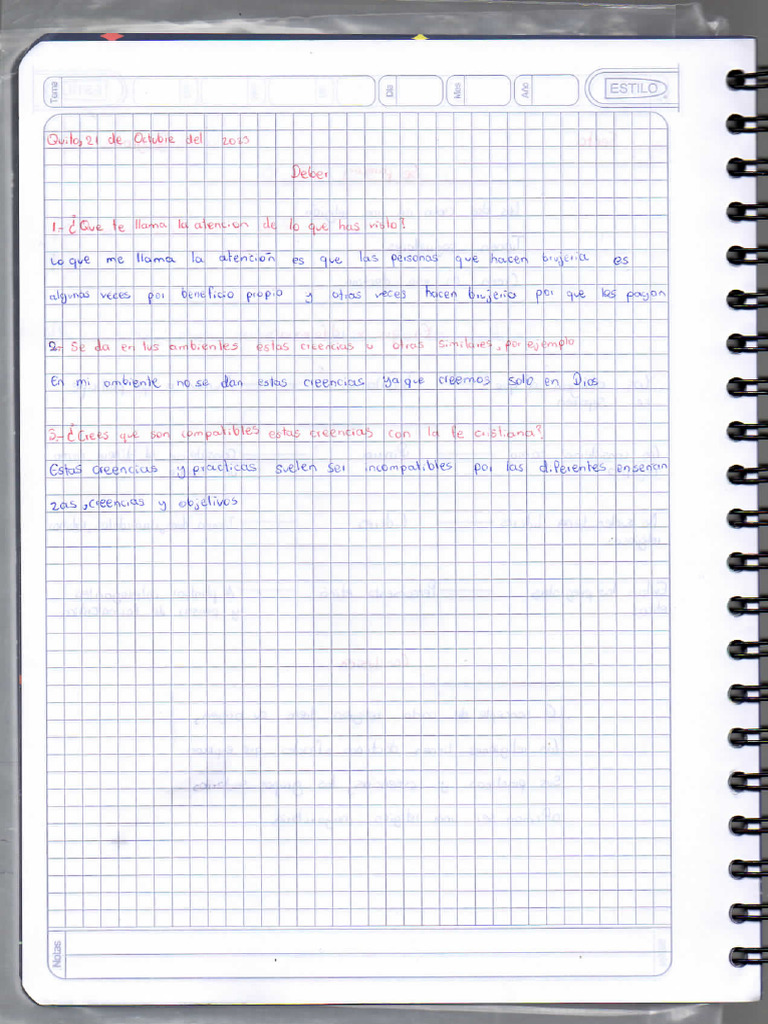 Tema
Día
Mes
Año
ESTILO
Quito, 21 de Octubre del 2023
Deber
1.- ¿Que te llama la atencion de lo que has visto?
Lo que me llama la atención es que las personas que hacen brujeria es
algunas veces por beneficio propio y otras veces hacen brujeria por que les pagan
2.- Se da en tus ambientes estas creencias u otras similares, por ejemplo
En mi ambiente no se dan estas creencias ya que creemos solo en Dios
3.- ¿Crees que son compatibles estas creencias con la fe cristiana?
Estas creencias y practicas suelen ser incompatibles por las diferentes enseñan
zas, creencias y objetivos
Notas